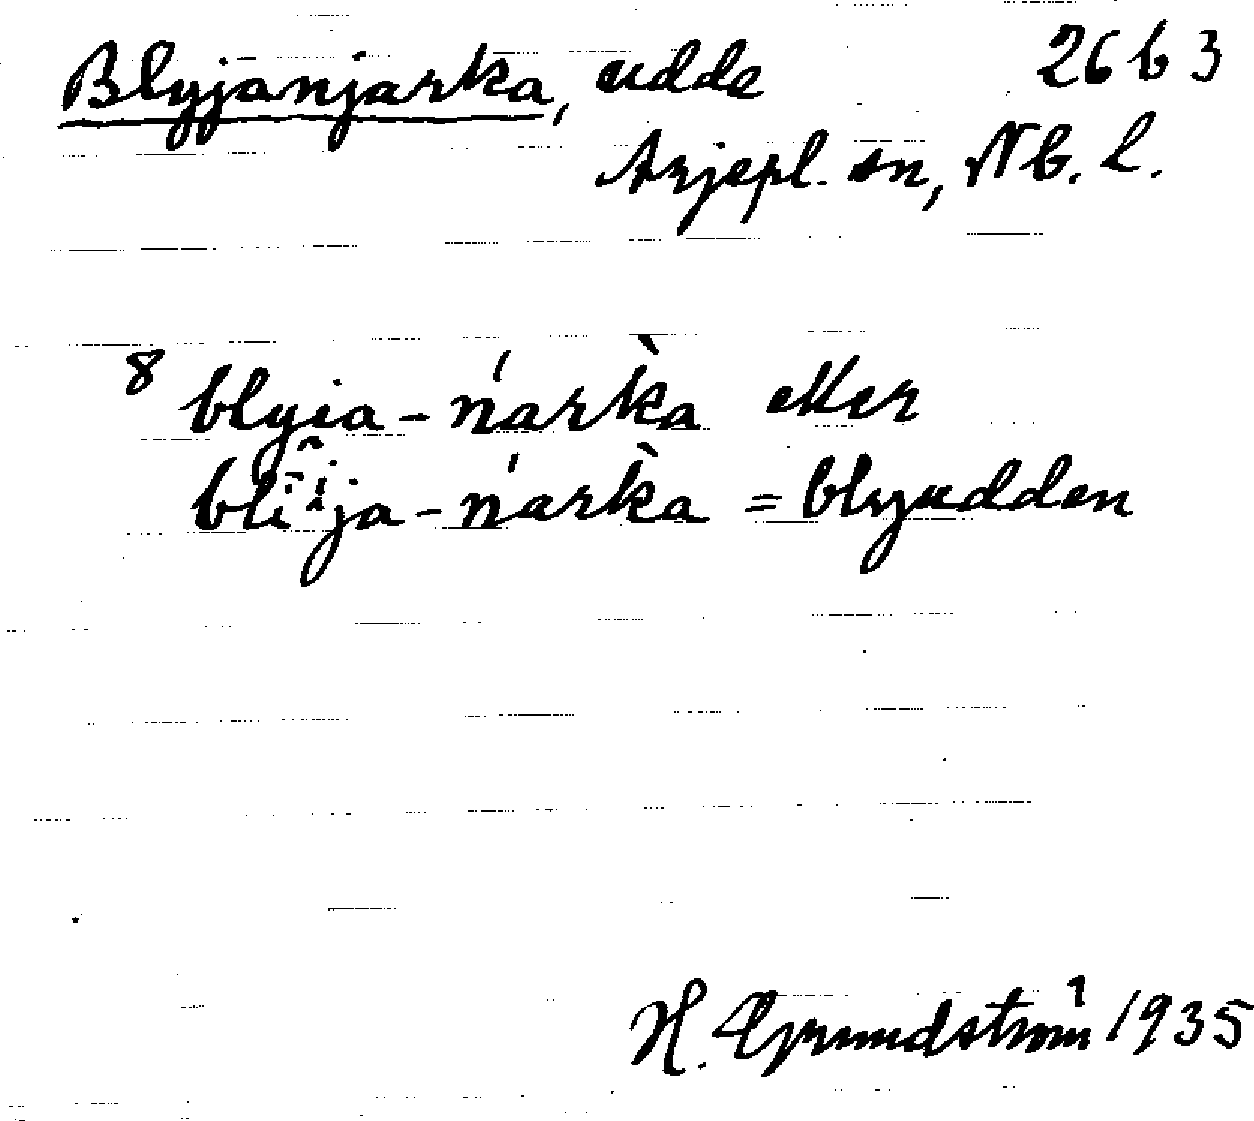 Blyjanjarka, udde 26 b 3
Arjepl. sn, Nb. l.
8 blyia-ńark̀a eller
blîi̯ja-ńark̀a = blyudden
H. Grundström 1935